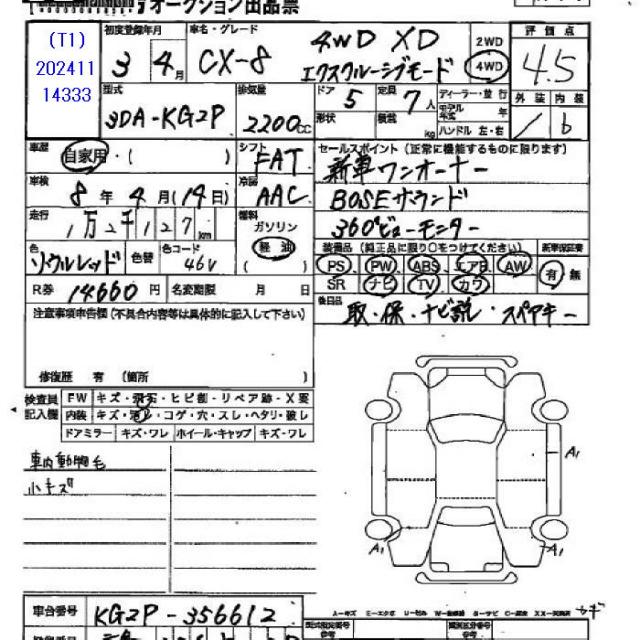 オークション出品票
(T1)
202411
14333
初度登録年月
3年 4月
車名・グレード
CX-8
4WD XD
エクスクルーシブモード
2WD
4WD
評価点
4.5
型式
3DA-KG2P
排気量
2200cc
ドア 5
定員 7人
形状
積載 kg
ディーラー・並行
モデル年式 年
ハンドル 左・右
外装 内装
b
車歴
自家用・( )
シフト
FAT
セールスポイント(正常に機能するものに限ります)
新車ワンオーナー
車検
8年4月(14日)
冷房
AAC
BOSEサウンド
走行
1万2千127km
燃料
ガソリン
軽油
( )
360°ビューモニター
色
ソウルレッド
色替
色コード
46V
装備品(純正品に限り○をつけてください)
新車保証書
PS PW ABS エアB AW
SR ナビ TV カワ
有・無
R券 14660円
名変期限 月 日
後日品
取・保・ナビ説・スペアキー
注意事項申告欄(不具合内容等は具体的に記入して下さい)
修復歴 有 (箇所 )
検査員
記入欄
FW キズ・飛石・ヒビ割・リペア跡・X要
内装 キズ・汚レ・コゲ・穴・スレ・ヘタリ・破レ
ドアミラー キズ・ワレ ホイール・キャップ キズ・ワレ
車内動物毛
小キズ
A1
A1
A1
車台番号
KG2P-356612
A-キズ
型式指定番号
類別区分番号
参考
参考